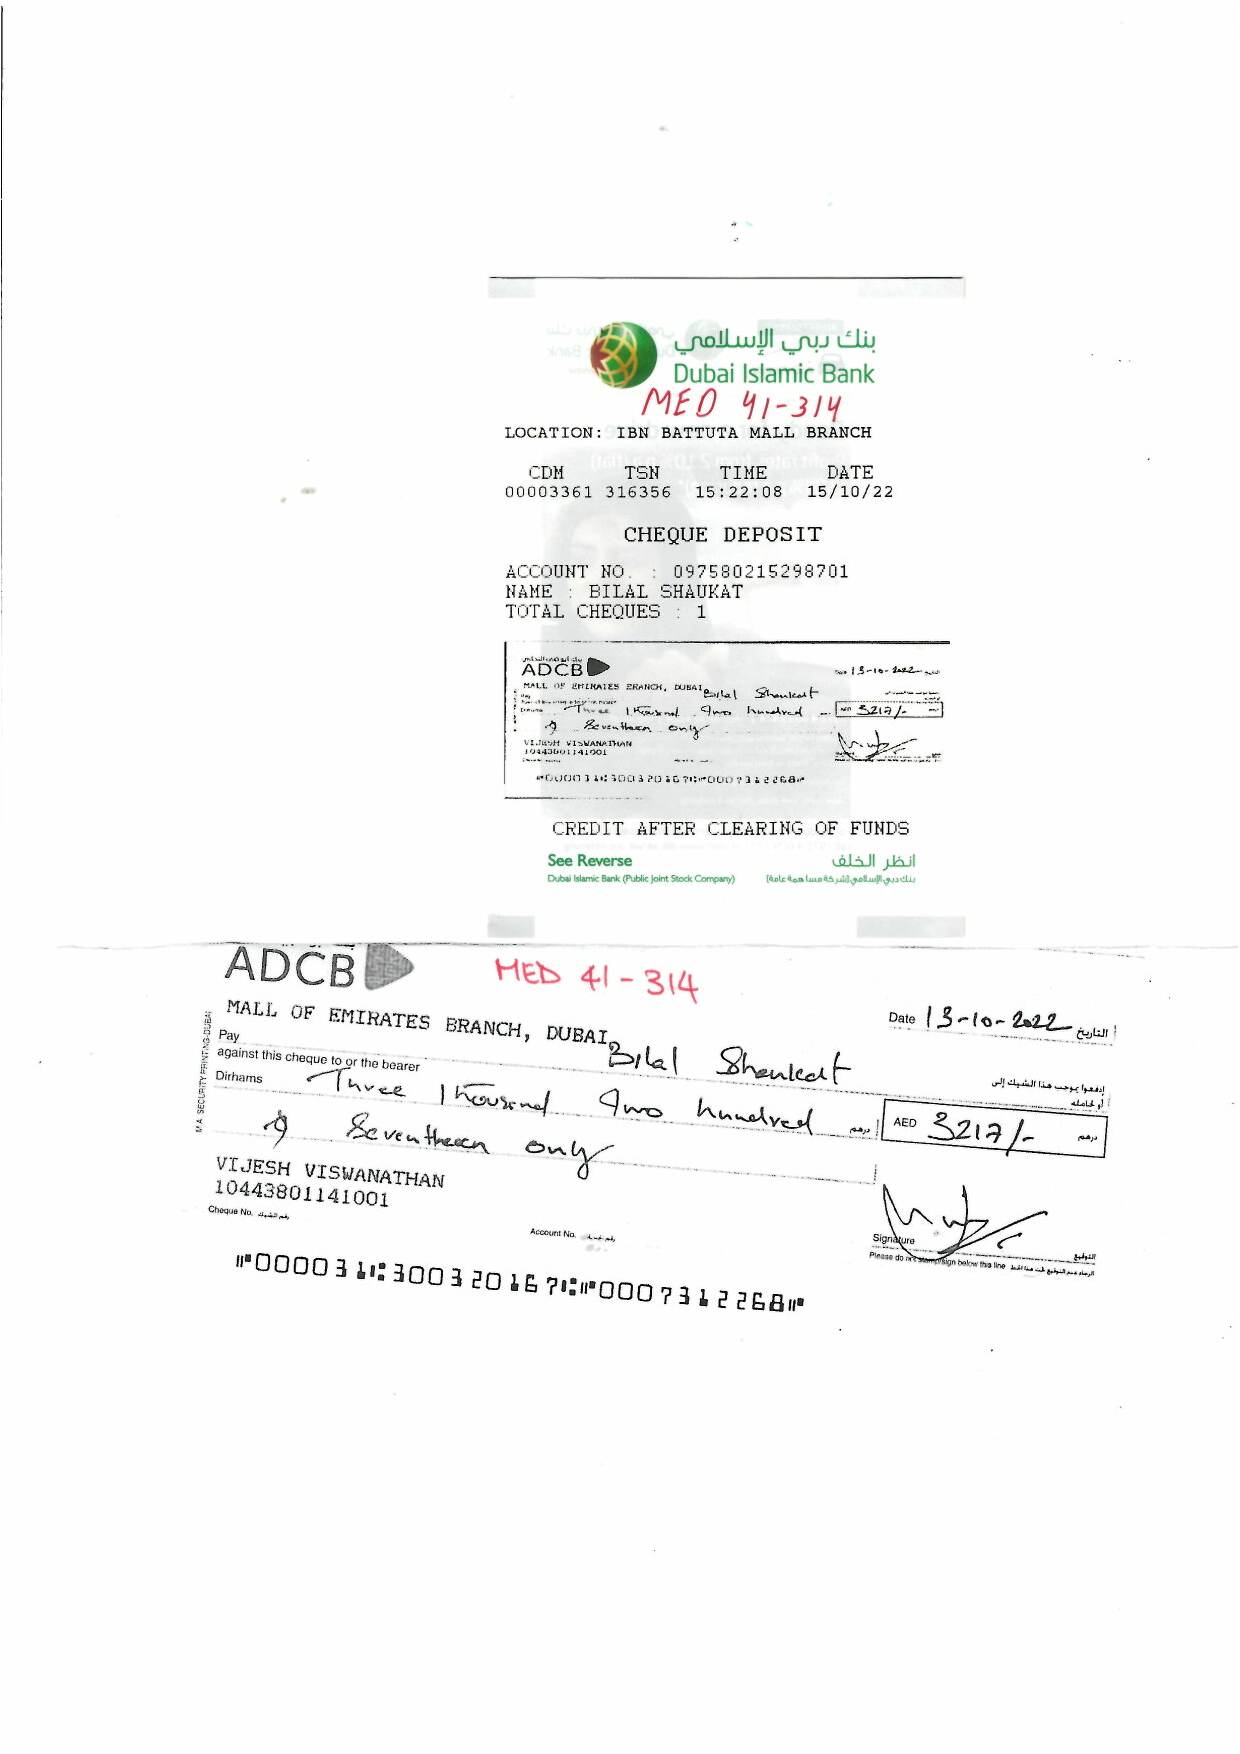 بنك دبي الإسلامي
Dubai Islamic Bank
MED 41-314
LOCATION: IBN BATTUTA MALL BRANCH
CDM TSN TIME DATE
00003361 316356 15:22:08 15/10/22
CHEQUE DEPOSIT
ACCOUNT NO. : 097580215298701
NAME : BILAL SHAUKAT
TOTAL CHEQUES : 1
ADCB
13-10-2022
MALL OF EMIRATES BRANCH, DUBAI
Bilal Shaukat
Three Thousand Two hundred
3217/-
& Seventheen only
VIJESH VISWANATHAN
10443801141001
CREDIT AFTER CLEARING OF FUNDS
See Reverse انظر الخلف
Dubai Islamic Bank (Public Joint Stock Company) بنك دبي الإسلامي (شركة مساهمة عامة)
ADCB
MED 41-314
MALL OF EMIRATES BRANCH, DUBAI
Date 13-10-2022 التاريخ
Pay Bilal Shaukat
against this cheque to or the bearer
إدفعوا بموجب هذا الشيك إلى
أو لحامله
Dirhams Three Thousand Two hundred درهم
AED 3217/- درهم
& Seventheen only
VIJESH VISWANATHAN
10443801141001
Cheque No. رقم الشيك
Account No.
Signature التوقيع
Please do not stamp/sign below this line
M A SECURITY PRINTING-DUBAI
⑈000031⑆300320167⑆⑈0007312268⑈